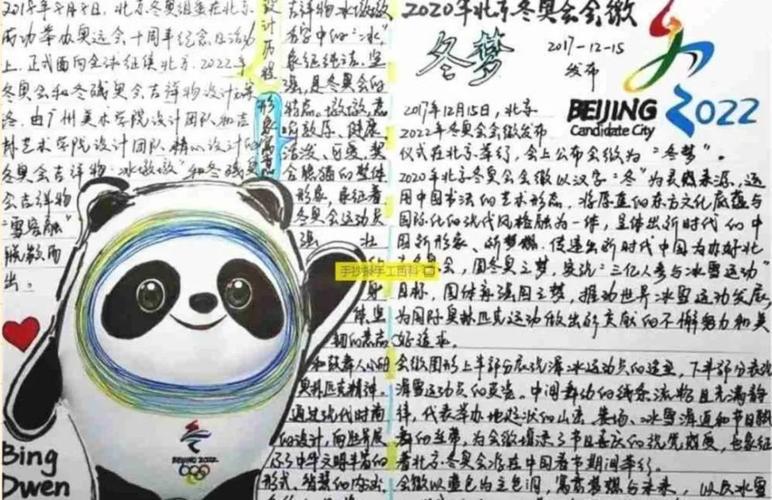 2018年8月8日，北京冬奥组委在北京
两动举办奥运会十周年纪念日活动
上，正式面向全球征集北京2022年
冬奥会和冬残奥会吉祥物设计方案
由广州美术学院设计团队和吉
林艺术学院设计团队精心设计的
冬奥会吉祥物"冰墩墩"和冬残奥
会吉祥物
"雪容融"
脱颖而
出。
设计历程
吉祥物冰墩墩
名字中的"冰"
象征纯洁、坚
强，是冬奥会的
特点。墩墩意
敦厚、健康
活泼、可爱，契
合熊猫的整体
形象，象征着
冬奥会运动员
强壮
形象寓意
身
体、坚
韧的意志
和鼓舞人心的
奥林匹克精神。
通过现代时尚
的设计，向世界展
示了中华文明丰富的
形式
Bing
Dwen
BEIJING 2022
手抄报手工百科
2020年北京冬奥会会徽
冬梦
2017-12-15
发布
BEIJING 2022
Candidate City
2017年12月15日，北京
2022年冬奥会会徽发布
仪式在北京举行，会上公布会徽为"冬梦"。
2020年北京冬奥会会徽以汉字"冬"为灵感来源，运
用中国书法的艺术形态，将厚重的东方文化底蕴与
国际化的现代风格融为一体，呈现出新时代的中
国新形象、新梦想，传递出新时代中国为办好北
冬奥会，圆冬奥之梦，实现"三亿人参与冰雪运动"
目标，圆体育强国之梦，推动世界冰雪运动发展，
为国际奥林匹克运动做出新贡献的不懈努力和美
好追求。
会徽图形上半部分展现滑冰运动员的造型，下半部分表现
滑雪运动员的英姿。中间舞动的线条流畅且充满韵
律，代表举办地起伏的山峦、赛场、冰雪滑道和节日飘
舞的丝带，为会徽增添了节日喜庆的视觉感受，也象征
着北京冬奥会将在中国春节期间举行。
会徽以蓝色为主色调，寓意梦想与未来，以及冰雪